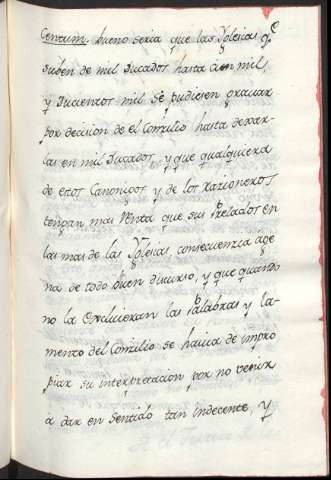 Centum. bueno seria que las Yglesias qᵉ
suben de mil Ducados hasta cien mil,
y Ducientos mil se pudiesen gravar
por decision de el Conzilio hasta dexar-
las en mil Ducados, y que qualquiera
de estos Canonigos y de los Razioneros
tengan mas Renta que sus Prelados en
las mas de las Yglesias, consecuenzia age
na de todo buen discurso, y que quando
no la excluieran las Palabras y la-
mento del Conzilio se havia de impro
piar su interpretacion por no venir
a dar en sentido tan indecente, y